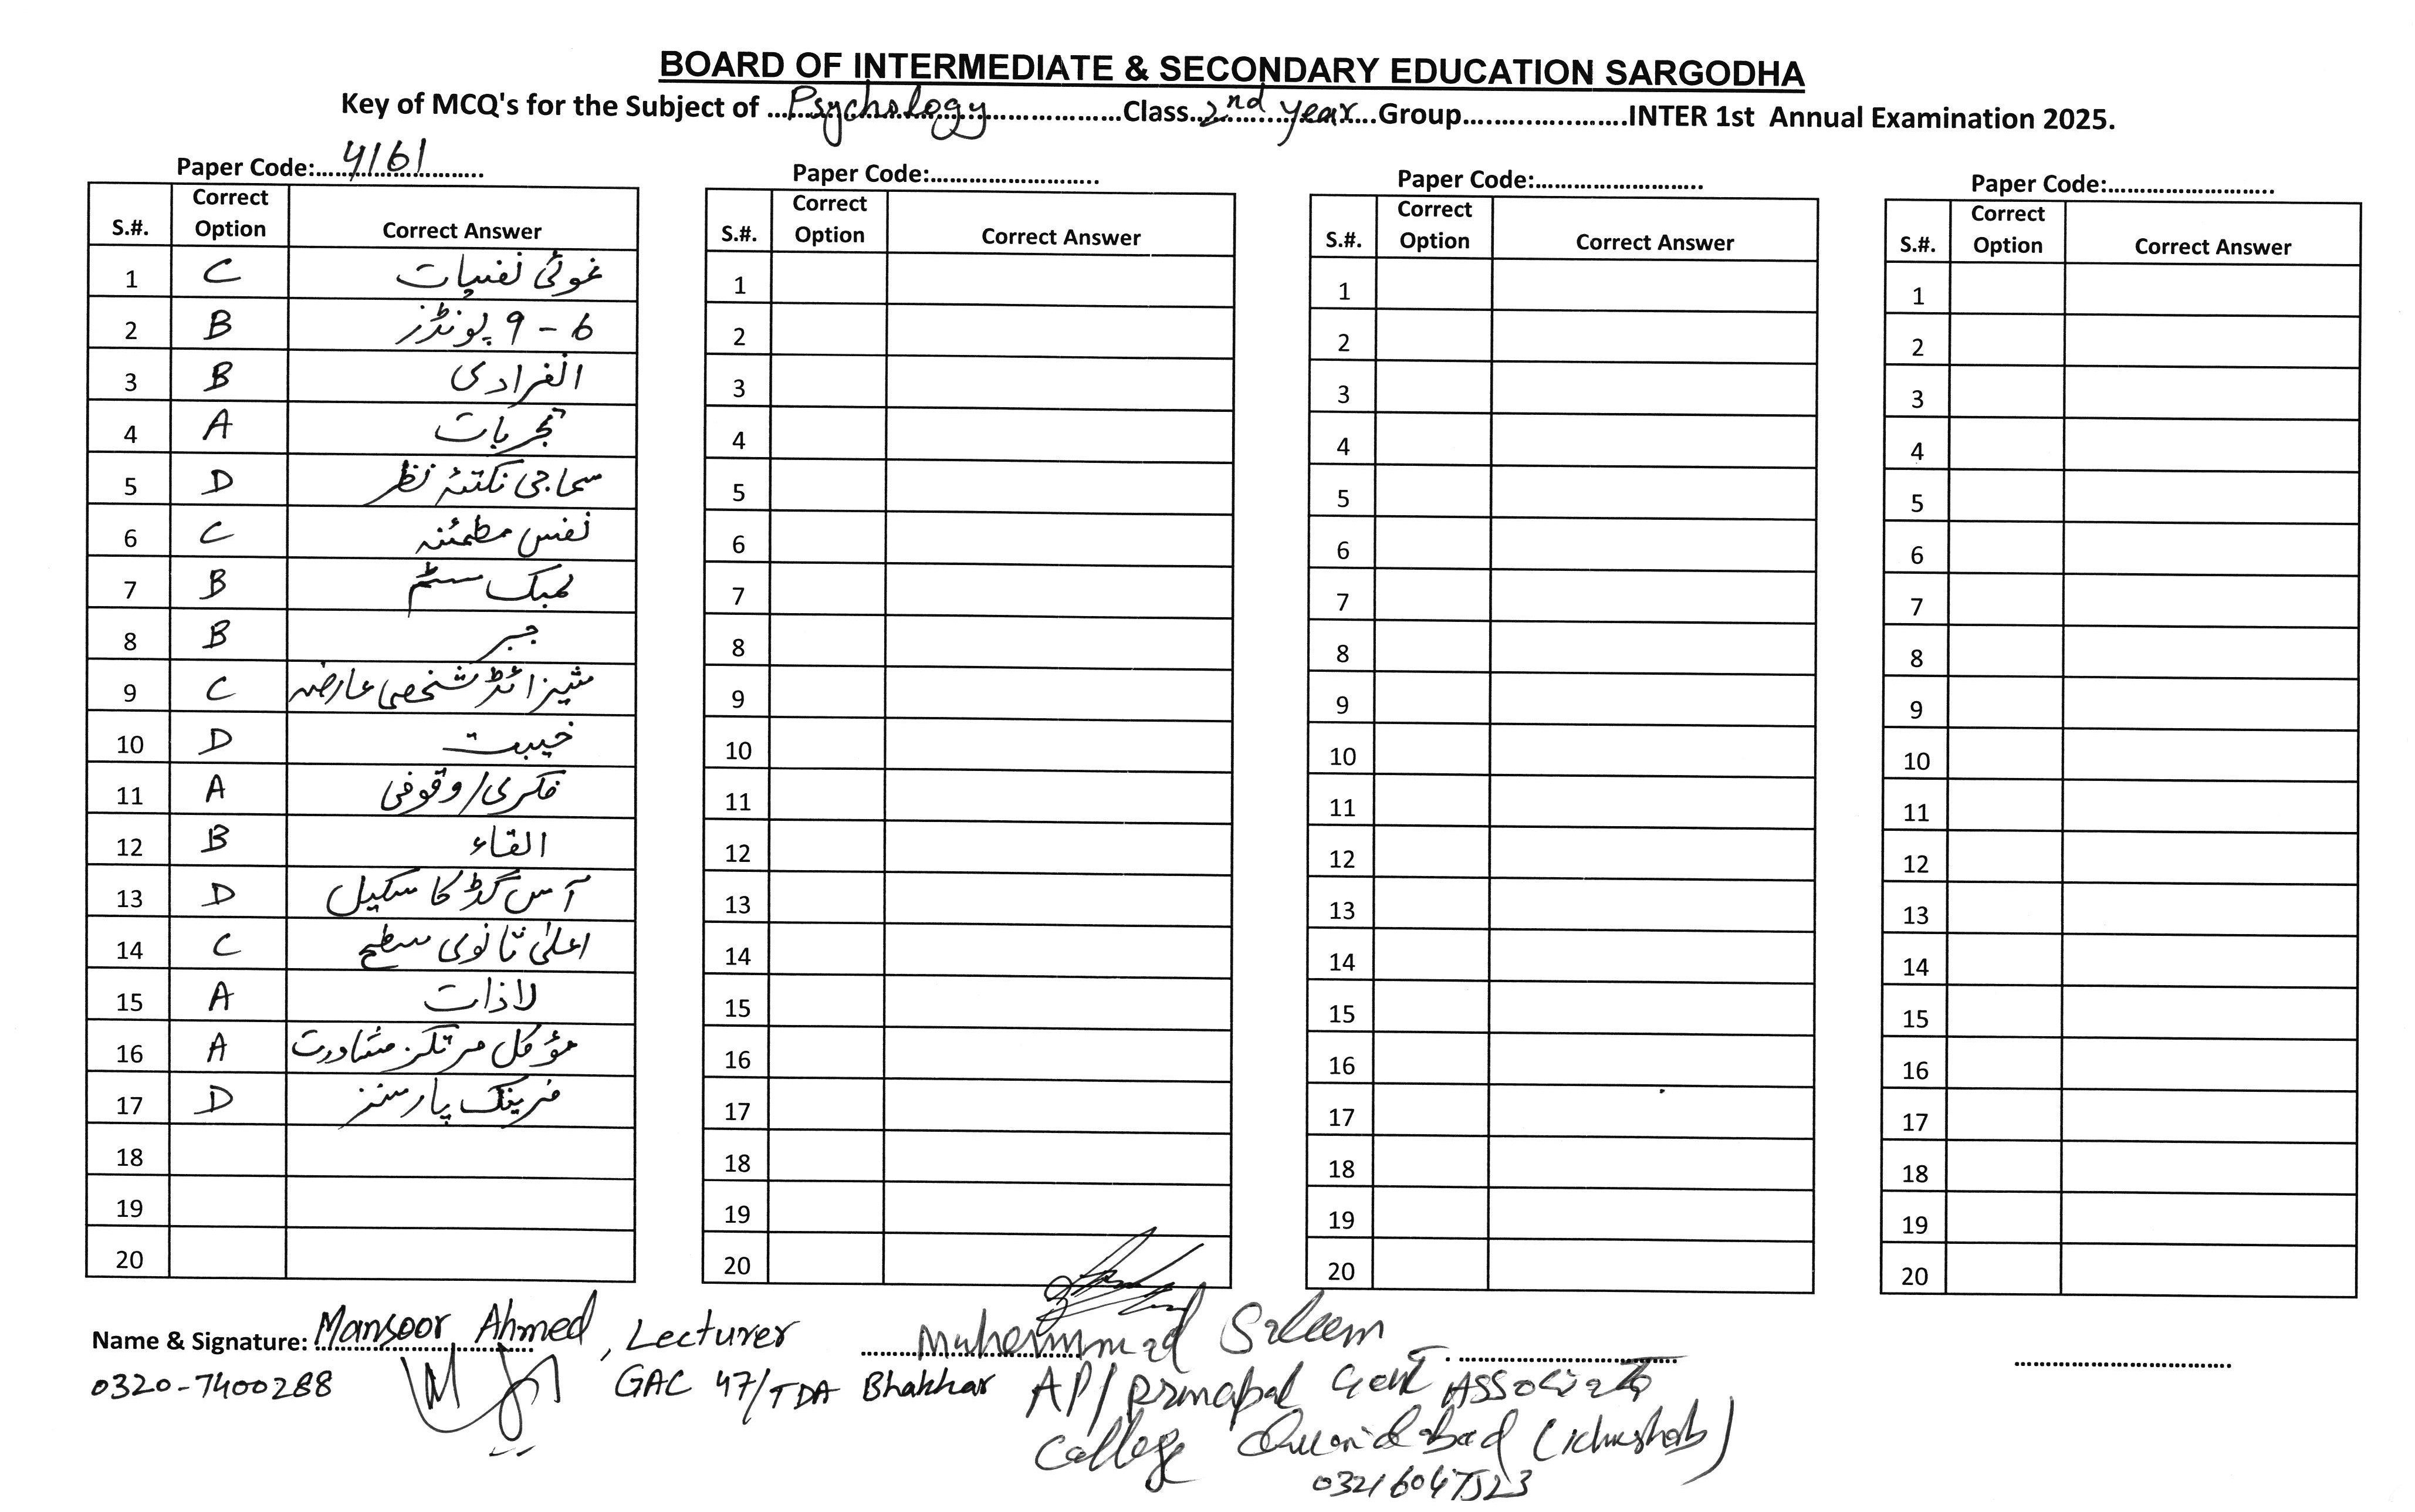 BOARD OF INTERMEDIATE & SECONDARY EDUCATION SARGODHA
Key of MCQ's for the Subject of Psychology Class 2nd year Group INTER 1st Annual Examination 2025.
Paper Code: 4161
S.#. Correct Option Correct Answer
1 C غوئی نفسیات
2 B 6 - 9 پونڈز
3 B انفرادی
4 A تجربات
5 D سماجی نکتۂ نظر
6 C نفس مطمئنہ
7 B لمبک سسٹم
8 B جبر
9 C شیزائڈ شخصی عارضہ
10 D خیبت
11 A فکری/وقوفی
12 B القاء
13 D آس گڈ کا سکیل
14 C اعلیٰ ثانوی سطح
15 A لاذات
16 A مؤکل مرتکز مشاورت
17 D فرینک پارسنز
18
19
20
Paper Code:
S.#. Correct Option Correct Answer
1
2
3
4
5
6
7
8
9
10
11
12
13
14
15
16
17
18
19
20
Paper Code:
S.#. Correct Option Correct Answer
1
2
3
4
5
6
7
8
9
10
11
12
13
14
15
16
17
18
19
20
Paper Code:
S.#. Correct Option Correct Answer
1
2
3
4
5
6
7
8
9
10
11
12
13
14
15
16
17
18
19
20
Name & Signature: Mansoor Ahmed, Lecturer
0320-7400288
GAC 47/TDA Bhakhar
Muhammad Saleem
AP/Principal Govt Associate
College Quaidabad (Khushab)
03216047523